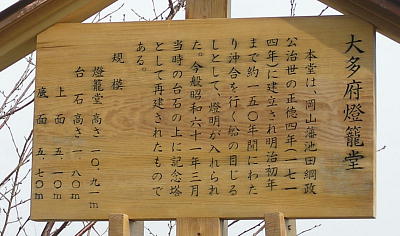 大多府燈籠堂
本堂は、岡山藩池田綱政
公治世の正徳四年(一七一
四年)に建立され明治初年
まで約一五〇年間にわた
り沖合を行く船の目じる
しとして、燈明が入れられ
た。今般昭和六十一年三月
当時の台石の上に記念塔
として再建されたもので
ある。
規模
燈籠堂高さ 一〇.九一m
台石高さ 一.八〇m
上面 五.一〇m
底面 五.七〇m